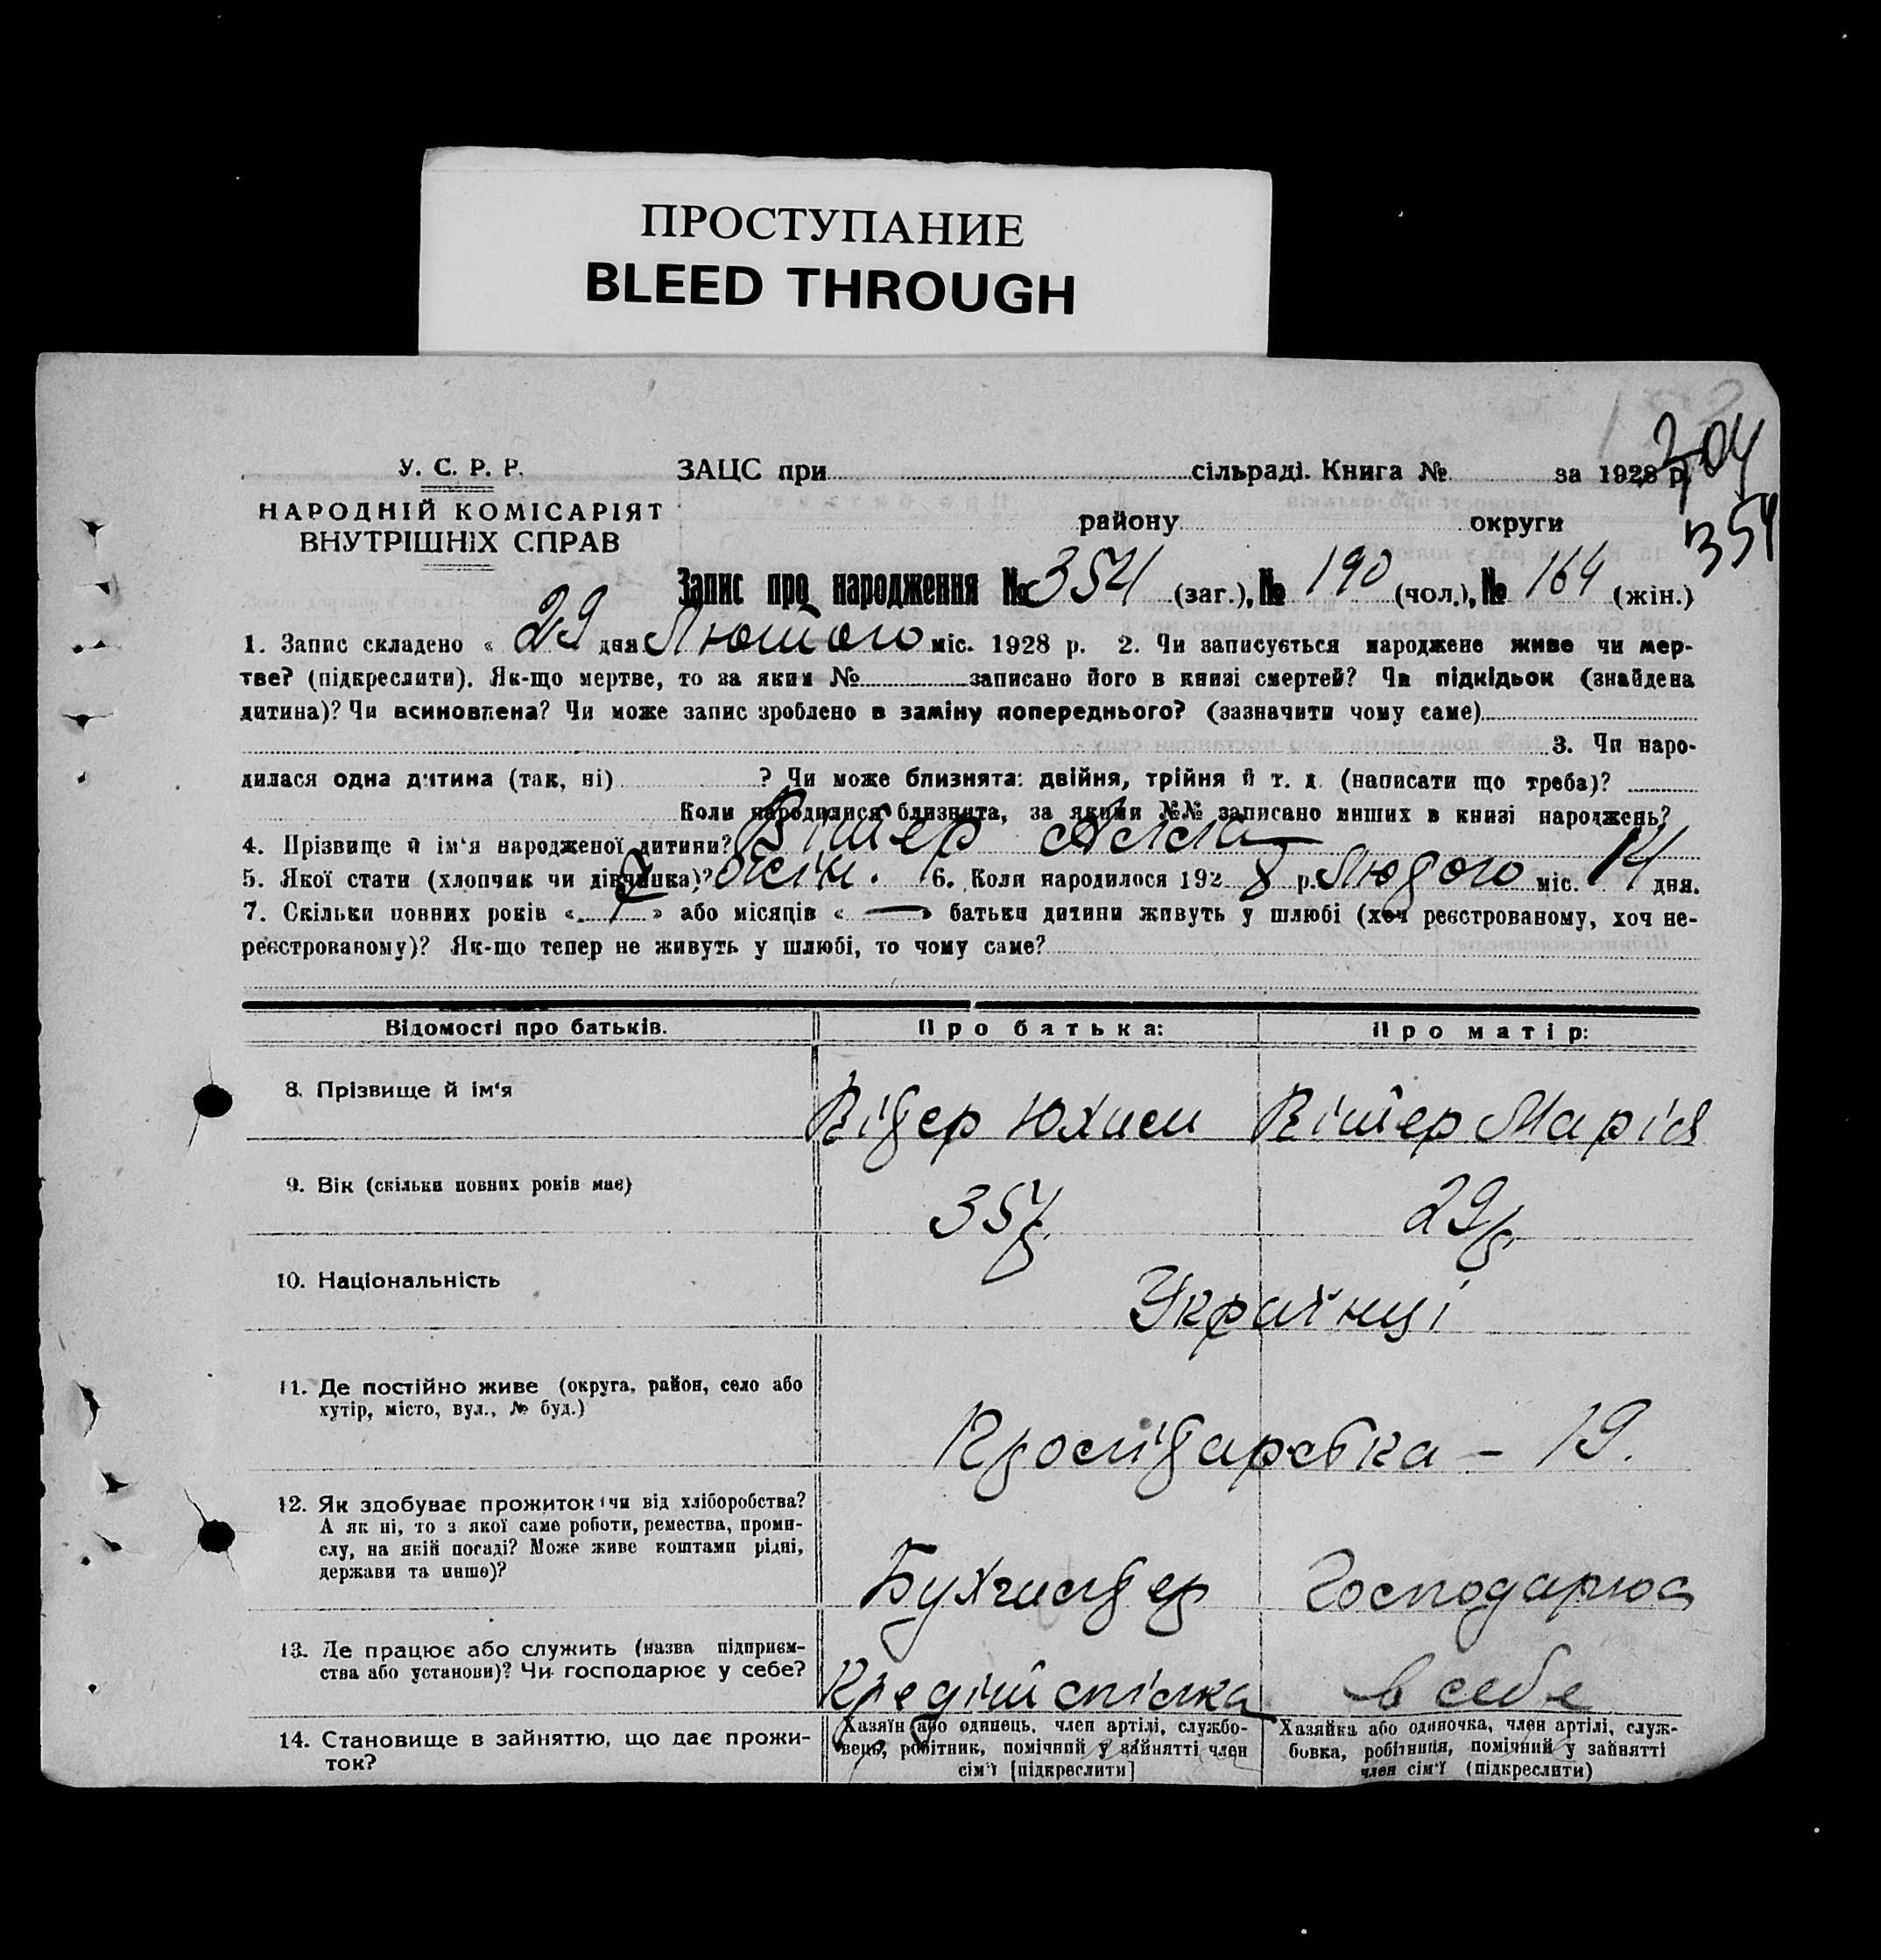 ПРОСТУПАНИЕ
BLEED THROUGH
204
354
У. С. Р. Р.
НАРОДНІЙ КОМІСАРІЯТ
ВНУТРІШНІХ СПРАВ
ЗАЦС при сільраді. Книга № за 1928 р.
району округи
Запис про народження № 354 (заг.), № 190 (чол.), № 164 (жін.)
1. Запис складено « 29 дня Лютого міс. 1928 р. 2. Чи записується народжене живе чи мер-
тве? (підкреслити). Як-що мертве, то за яким № записано його в книзі смертей? Чи підкідьок (знайдена
дитина)? Чи всиновлена? Чи може запис зроблено в заміну попереднього? (зазначити чому саме)
3. Чи наро-
дилася одна дитина (так, ні) ? Чи може близнята: двійня, трійня й т. д. (написати що треба)?
Коли народилися близнята, за якими №№ записано инших в книзі народжень?
4. Прізвище й ім'я народженої дитини? Вітер Алла
5. Якої стати (хлопчик чи дівчинка)? жін. 6. Коли народилося 1928 р. Лютого міс. 14 дня.
7. Скільки повних років « » або місяців « — » батьки дитини живуть у шлюбі (хоч реєстрованому, хоч не-
реєстрованому)? Як-що тепер не живуть у шлюбі, то чому саме?
Відомості про батьків. Про батька: Про матір:
8. Прізвище й ім'я Вітер Юхим Вітер Марія
9. Вік (скільки повних років має) 35 29
10. Національність Українці
11. Де постійно живе (округа, район, село або
хутір, місто, вул., № буд.)
19.
12. Як здобуває прожиток (чи від хліборобства?
А як ні, то з якої саме роботи, ремества, проми-
слу, на якій посаді? Може живе коштами рідні,
держави та инше)?
Бухгалтер Господарює
13. Де працює або служить (назва підприєм-
ства або установи)? Чи господарює у себе?
Кредітспілка в себе
14. Становище в зайняттю, що дає прожи-
ток?
Хазяїн або одинець, член артілі, службо-
вець, робітник, помічний у зайнятті член
сім'ї [підкреслити]
Хазяйка або одиночка, член артілі, служ-
бовка, робітниця, помічний у зайнятті
член сім'ї (підкреслити)